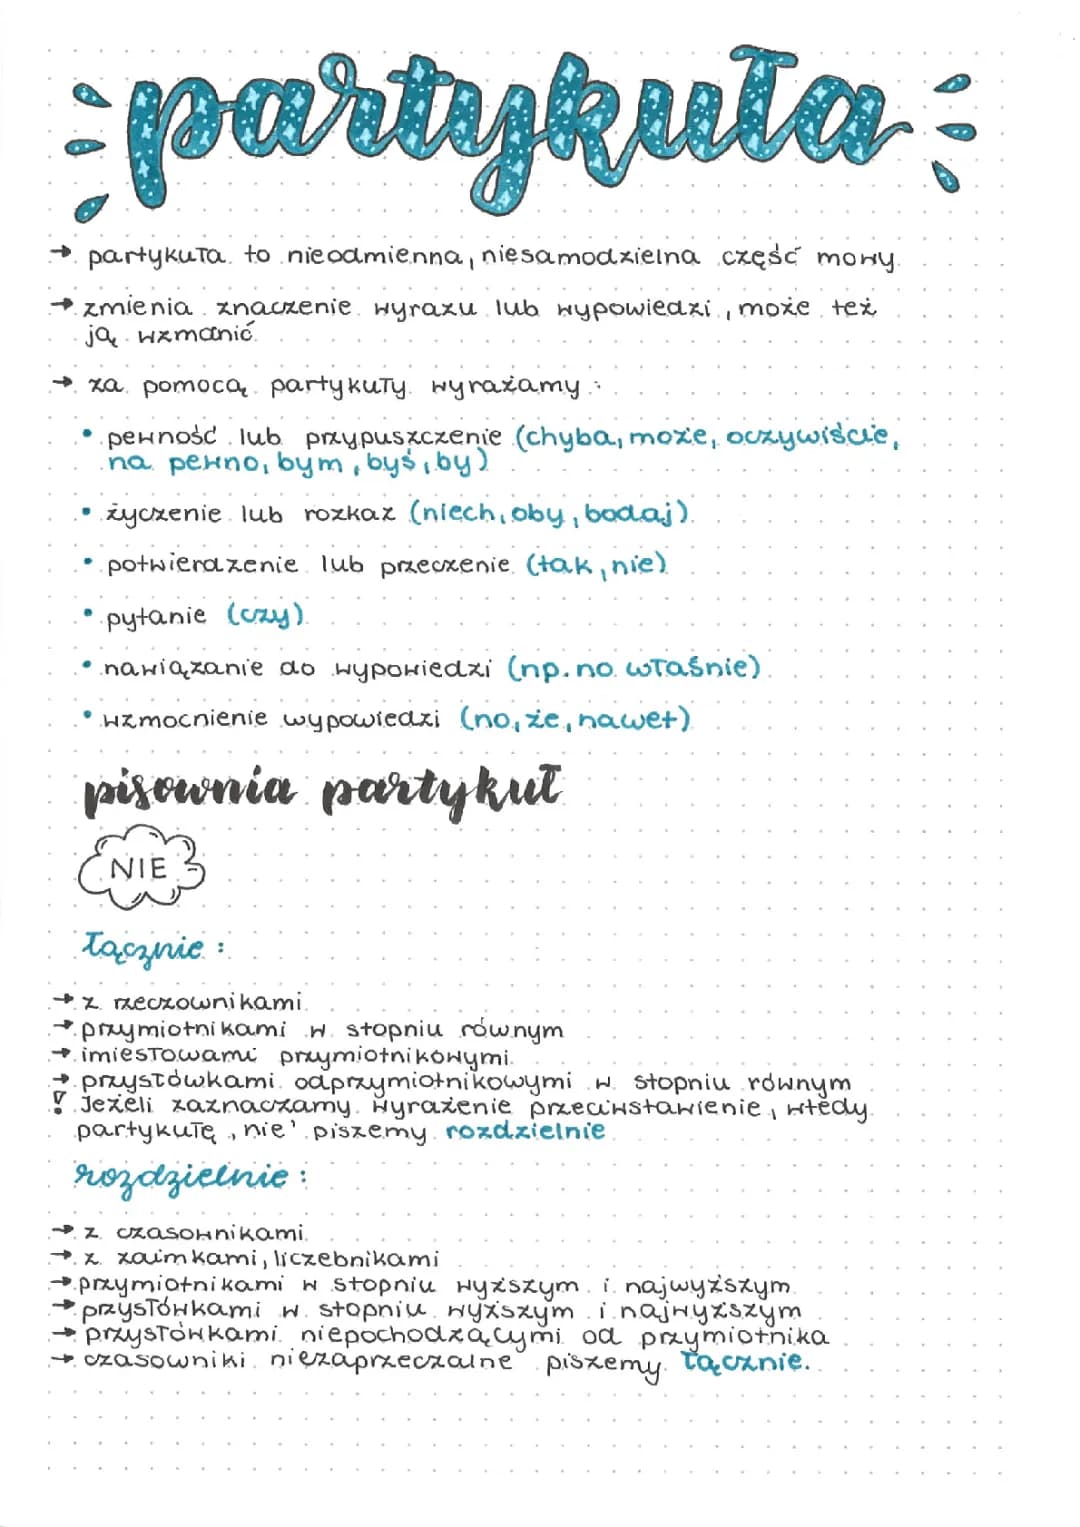 partykuła
→ partykuła to nieodmienna, niesamodzielna część mowy
→ zmienia znaczenie wyrazu lub wypowiedzi, może też
ją wzmonić
→ za pomocą partykuły wyrażamy:
• pewność lub przypuszczenie (chyba, może, oczywiście,
na pewno, bym, byś, by)
• życzenie lub rozkaz (niech, oby, bodaj)
• potwierdzenie lub przeczenie (tak, nie)
• pytanie (czy)
• nawiązanie do wypowiedzi (np. no właśnie)
• wzmocnienie wypowiedzi (no, że, nawet)
pisownia partykuł
NIE
łącznie:
→ z rzeczownikami
→ przymiotnikami w stopniu równym
→ imiesłowami przymiotnikowymi
→ przysłówkami odprzymiotnikowymi w stopniu równym
! Jeżeli zaznaczamy wyrażenie przeciwstawienie, wtedy
partykułę ,nie' piszemy rozdzielnie
rozdzielnie:
→ z czasownikami
→ z zaimkami, liczebnikami
→ przymiotnikami w stopniu wyższym i najwyższym
→ przysłówkami w stopniu wyższym i najwyższym
→ przysłówkami niepochodzącymi od przymiotnika
→ czasowniki niezaprzeczalne piszemy łącznie.